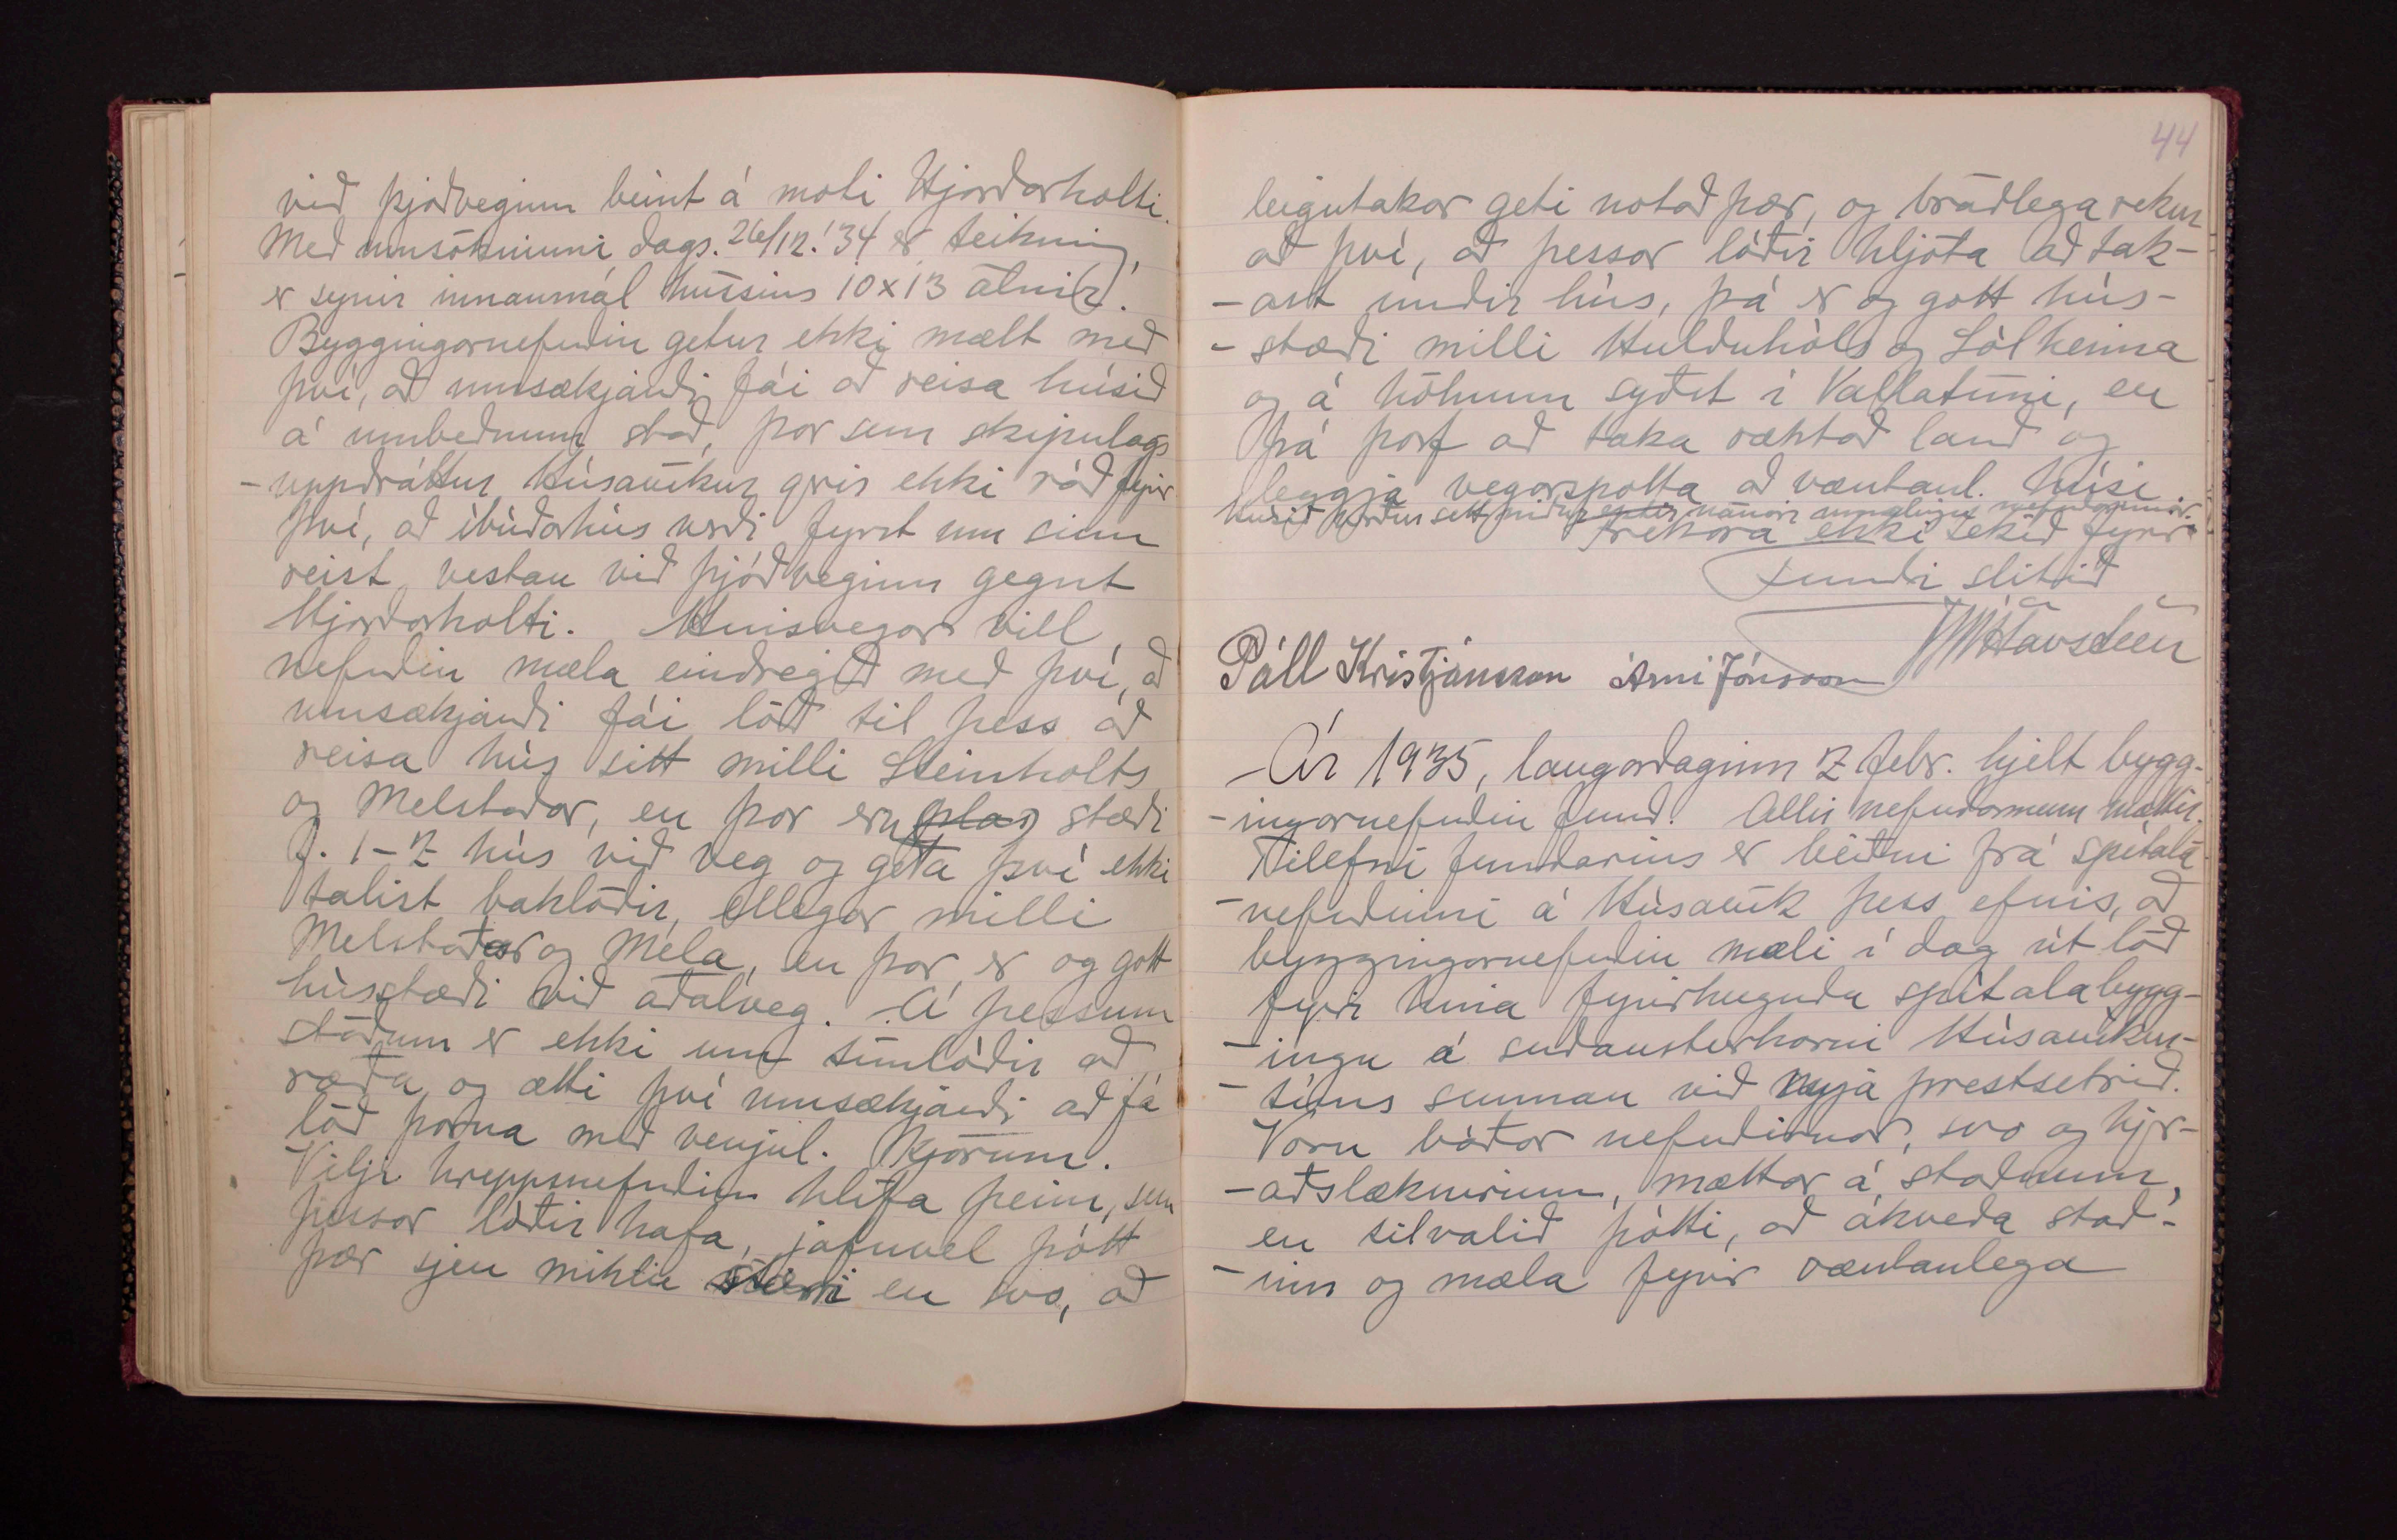 við þjóðveginn beint á móti Hjarðarholti.
Með umsókninni dags. 26/12. '34 er teikning,
er sýnir innanmál hússins 10x13 álnir.
Byggingarnefndin getur ekki mælt með
því, að umsækjandi fái að reisa húsið
á umbeðnum stað, þar sem skipulags
-uppdráttur Húsavíkur gerir ekki ráð fyrir
því, að íbúðarhús verði fyrst um sinn
reist vestan við þjóðveginn gegnt
Hjarðarholti. Hinsvegar vill
nefndin mæla eindregið með því, að
umsækjandi fái lóð til þess að
reisa hús sitt milli Steinholts
og Melstaðar, en þar eru plás stæði
f. 1-2 hús við veg og geta því ekki
talist baklóðir, ellegar milli
Melstaðar og Mela, en þar er og gott
hússtæði við aðalveg. Á þessum
stöðum er ekki um túnlóðir að
ræða og ætti því umsækjandi að fá
lóð þarna með venjul. kjörum.
Vilji hreppsnefndin hlífa þeim, sem
þessar lóðir hafa, jafnvel þótt
þær sjeu miklu stærri en svo, að
44
leigutakar geti notað þær, og bráðlega rekur
að því, að þessar lóðir hljóta að tak-
-ast undir hús, þá er og gott hús-
-stæði milli Hulduhóls og Sólheima
og á hólnum syðst í Vallatúni, en
þá þarf að taka ræktað land og
leggja vegarspotta að væntanl. húsi.
Húsið verður sett niður eptir nánari mælingu nefndarinnar.
Frekara ekki tekið fyrir
Fundi slitið
JHavsteen
Páll Kristjánsson Árni Jónsson
Ár 1935, laugardaginn 2 febr. hjelt bygg-
-ingarnefndin fund. Allir nefndarmenn mættir.
Tilefni fundarins er beiðni frá spítala
-nefndinni á Húsavík þess efnis, að
byggingarnefndin mæli í dag út lóð
fyrir hina fyrirhuguðu spítalabygg-
-ingu á suðausturhorni Húsavíkur-
-túns sunnan við nýja prestsetrið.
Voru báðar nefndirnar, svo og hjer-
-aðslæknirinn, mættar á staðnum,
en tilvalið þótti, að ákveða stað-
-inn og mæla fyrir væntanlega